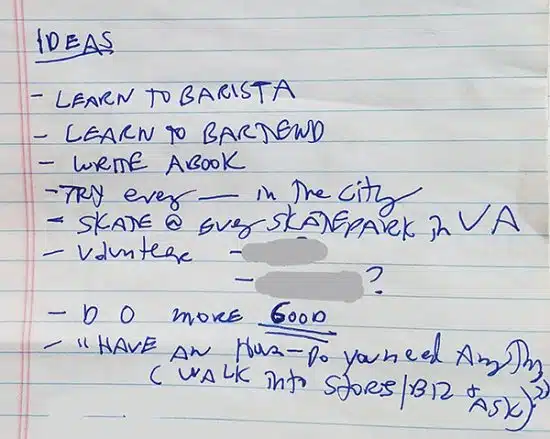 IDEAS
- LEARN TO BARISTA
- LEARN TO BARTEND
- WRITE A BOOK
- TRY every — in The City
- SKATE @ every SKATEPARK in VA
- Volunteer -
- ?
- DO MORE GOOD
- "HAVE AN Hour - Do you need AnyThing
(WALK into STORES/BIZ + ASK)?"